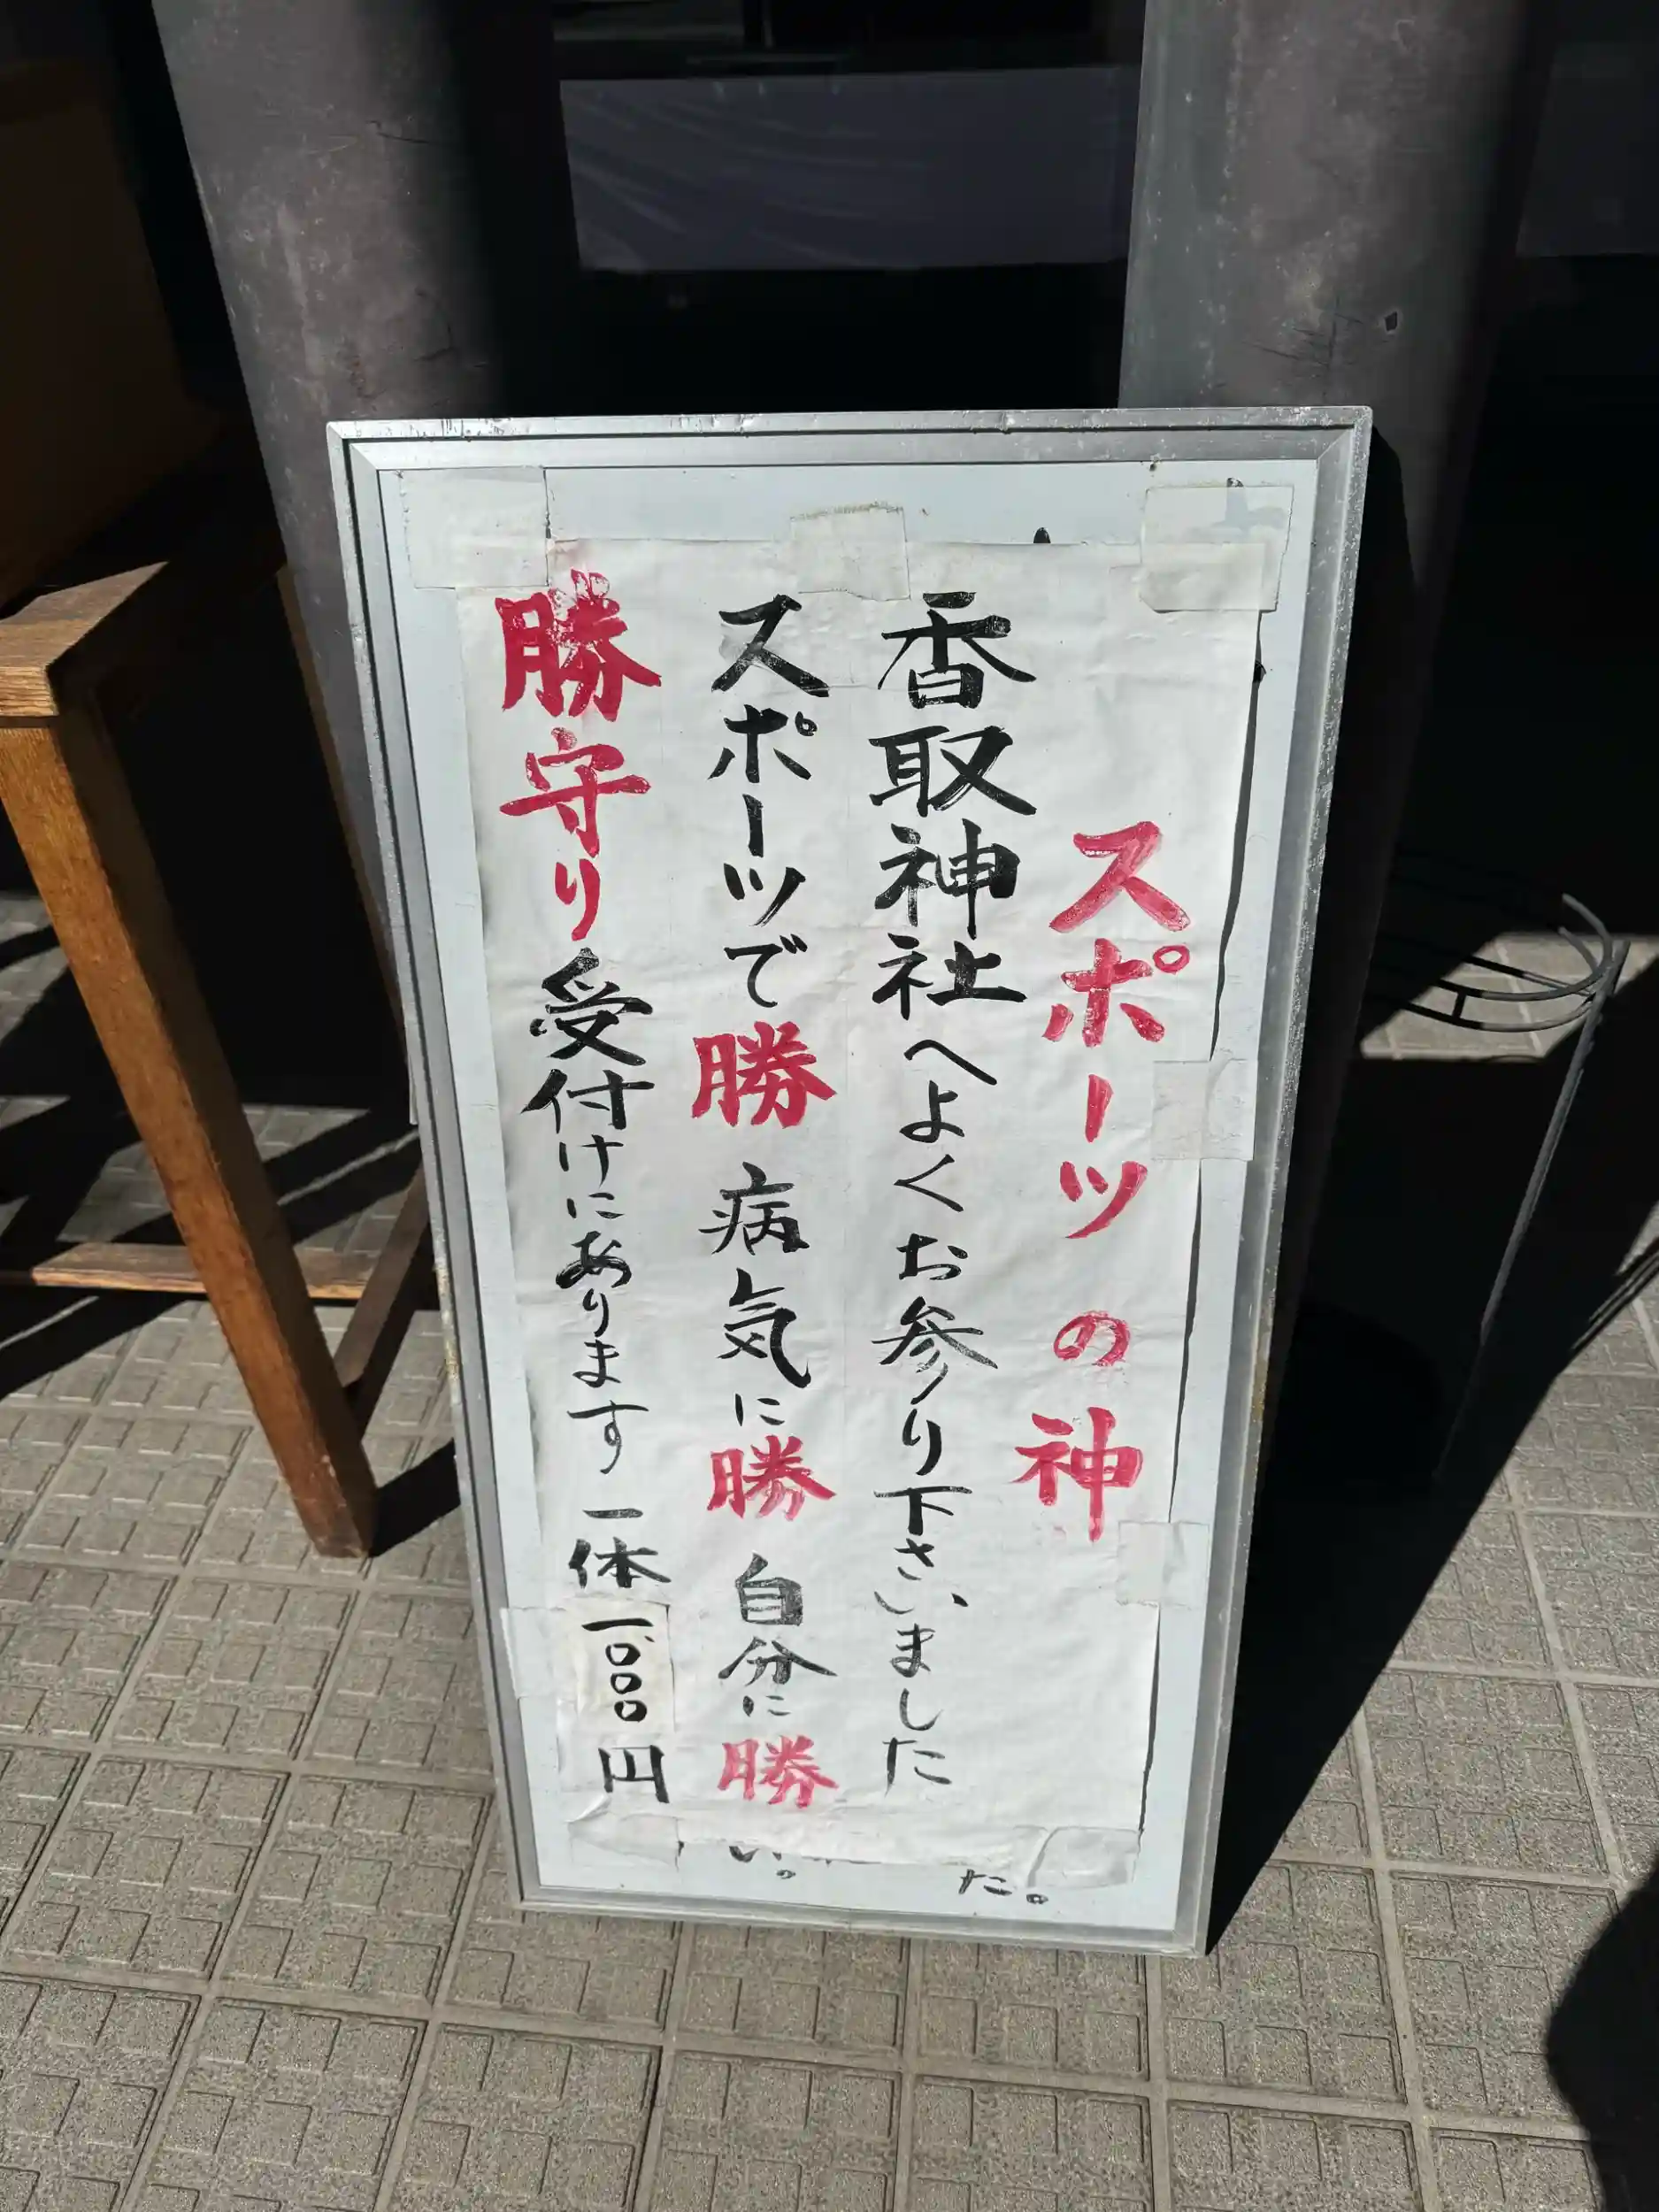 スポーツの神
香取神社へよくお参り下さいました
スポーツで勝 病気に勝 自分に勝
勝守り受付けにあります 一体一、000円
た。